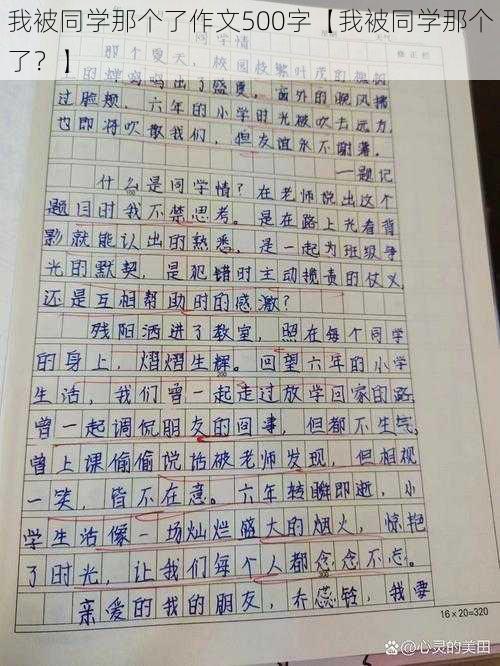 我被同学那个了作文500字【我被同学那个
了？】
同学情
修正栏
那个夏天，校园枝繁叶茂的
上的蝉鸣鸣出了盛夏，窗外的晚风拂
过脸颊，六年的小学时光被吹去远方，
也即将吹散我们，但友谊永不谢幕。
——题记
什么是同学情？在老师说出这个
题目时我不禁思考。是在路上光看背
影就能认出的熟悉，是一起为班级争
光的默契，是犯错时主动揽责的仗义
还是互相帮助时的感激？
残阳洒进了教室，照在每个同学
的身上，熠熠生辉。回望六年的小学
生活，我们曾一起走过放学回家的路
曾一起调侃朋友的囧事，但都不生气，
曾上课偷偷说话被老师发现，但相视
一笑，皆不在意。六年转瞬即逝，小
学生活像一场灿烂盛大的烟火，惊艳
了时光，让我们每个人都念念不忘。
亲爱的我的朋友，乔蕊铃，我要
16×20=320
@心灵的美田